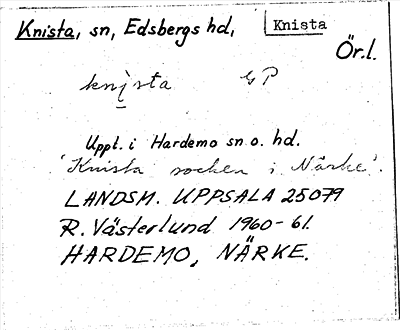 Knista, sn, Edsbergs hd,
Knista
Ör.l.
knista GP
Uppt. i Hardemo sn o. hd.
'Knista socken i Närke'.
LANDSM. UPPSALA 25079
R. Västerlund 1960-61.
HARDEMO, NÄRKE.